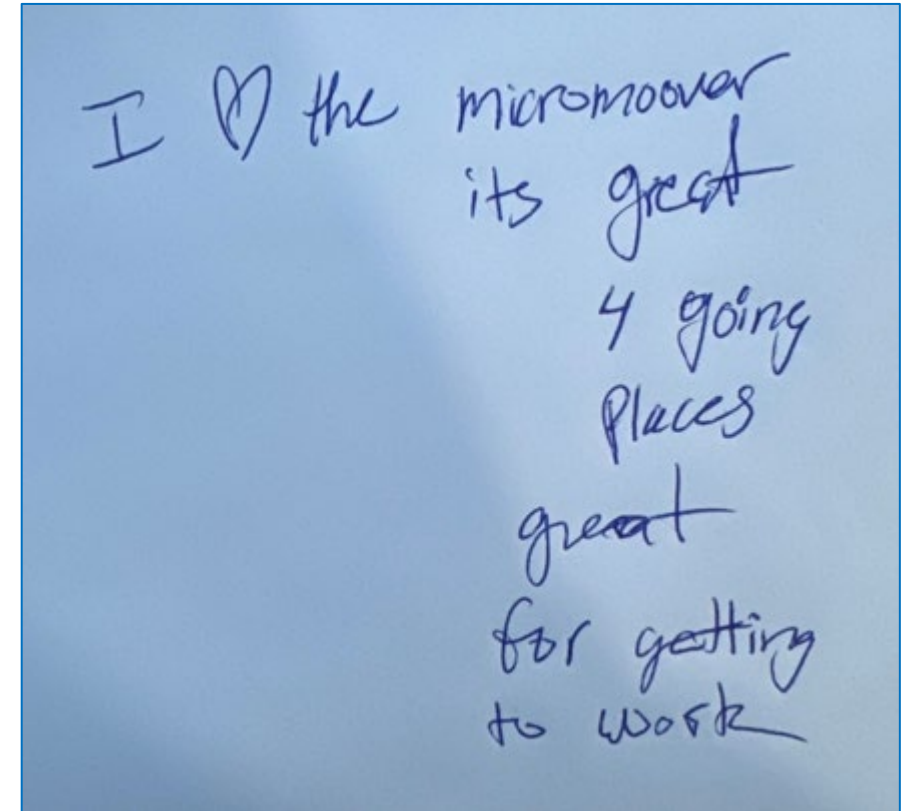 I ♡ the micromoover
its great
4 going
places
great
for getting
to work